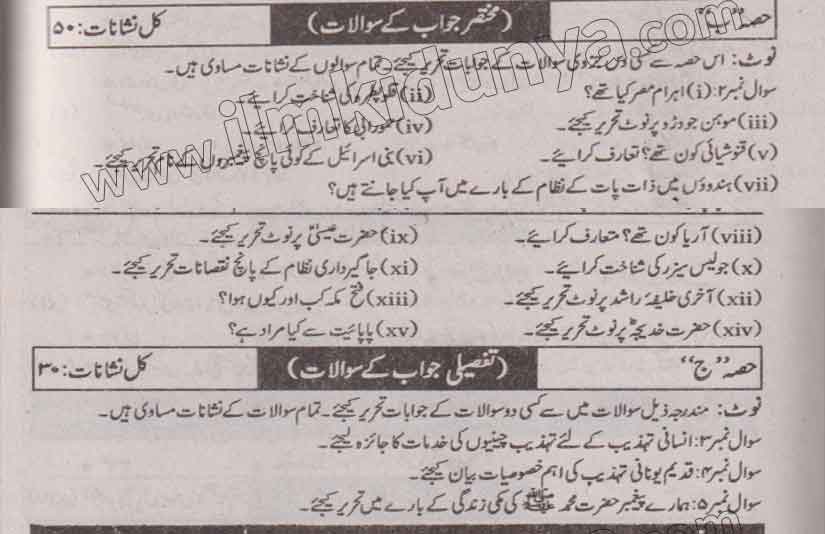 حصہ ’’ب‘‘ (مختصر جواب کے سوالات) کل نشانات: ۵۰
نوٹ: اس حصہ سے کسی دس جزوی سوالات کے جوابات تحریر کیجئے۔ تمام سوالوں کے نشانات مساوی ہیں۔
سوال نمبر ۲: (i) اہرام مصر کیا تھے؟ (ii) قلوپطرہ کی شناخت کرائیے۔
(iii) موہن جو دڑو پر نوٹ تحریر کیجئے۔ (iv) حمورابی کا تعارف کرائیے۔
(v) کنفوشیائی کون تھے؟ تعارف کرائیے۔ (vi) بنی اسرائیل کے کوئی پانچ پیغمبروں کے نام تحریر کیجئے۔
(vii) ہندوؤں میں ذات پات کے نظام کے بارے میں آپ کیا جانتے ہیں؟
(viii) آریا کون تھے؟ متعارف کرائیے۔ (ix) حضرت عیسیٰؑ پر نوٹ تحریر کیجئے۔
(x) جولیس سیزر کی شناخت کرائیے۔ (xi) جاگیرداری نظام کے پانچ نقصانات تحریر کیجئے۔
(xii) آخری خلیفۂ راشد پر نوٹ تحریر کیجئے۔ (xiii) فتح مکہ کب اور کیوں ہوا؟
(xiv) حضرت خدیجہؓ پر نوٹ تحریر کیجئے۔ (xv) پاپائیت سے کیا مراد ہے؟
حصہ ’’ج‘‘ (تفصیلی جواب کے سوالات) کل نشانات: ۳۰
نوٹ: مندرجہ ذیل سوالات میں سے کسی دو سوالات کے جوابات تحریر کیجئے۔ تمام سوالات کے نشانات مساوی ہیں۔
سوال نمبر ۳: انسانی تہذیب کے لئے تہذیب چینیوں کی خدمات کا جائزہ لیجئے۔
سوال نمبر ۴: قدیم یونانی تہذیب کی اہم خصوصیات بیان کیجئے۔
سوال نمبر ۵: ہمارے پیغمبر حضرت محمد ﷺ کی مکی زندگی کے بارے میں تحریر کیجئے۔
www.ilmkidunya.com